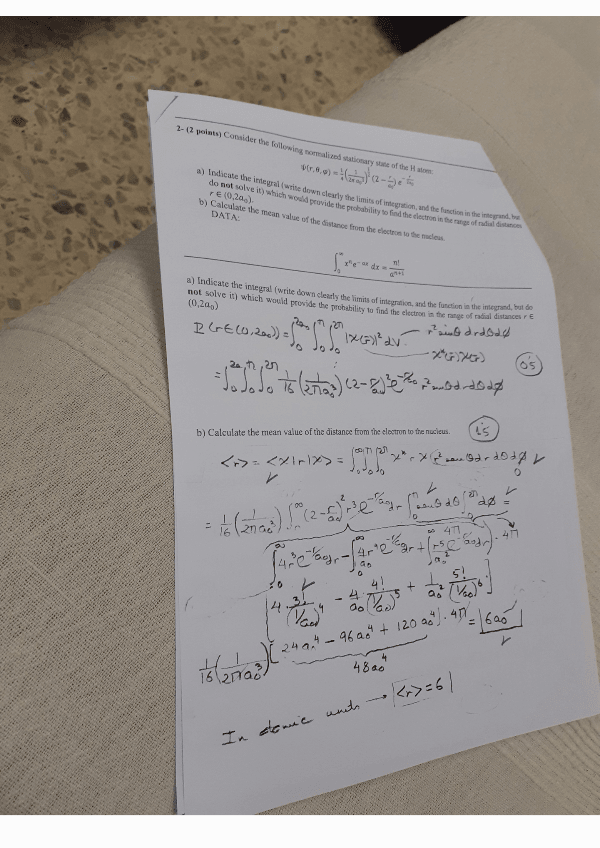 2- (2 points) Consider the following normalized stationary state of the H atom:
Ψ(r, θ, φ) = 1/4 (1/(2πa₀³))^(1/2) (2 − r/a₀) e^(−r/2a₀)
a) Indicate the integral (write down clearly the limits of integration, and the function in the integrand, but
do not solve it) which would provide the probability to find the electron in the range of radial distances
r ∈ (0,2a₀).
b) Calculate the mean value of the distance from the electron to the nucleus.
DATA:
∫₀^∞ xⁿe^(−ax) dx = n!/a^(n+1)
a) Indicate the integral (write down clearly the limits of integration, and the function in the integrand, but do
not solve it) which would provide the probability to find the electron in the range of radial distances r ∈
(0,2a₀)
P(r∈(0,2a₀)) = ∫₀^(2a₀) ∫₀^π ∫₀^(2π) |X(r̄)|² dV. r² sinθ dr dθ dφ
X*(r̄)X(r̄)
05
= ∫₀^(2a₀) ∫₀^π ∫₀^(2π) 1/16 (1/(2πa₀³)) (2 − r/a₀)² e^(−r/a₀) r² senθ dr dθ dφ
b) Calculate the mean value of the distance from the electron to the nucleus.
1.5
<r> = <X|r|X> = ∫₀^∞ ∫₀^π ∫₀^(2π) X* r X r² sen θ dr dθ dφ
= 1/16 (1/(2πa₀³)) ∫₀^∞ (2 − r/a₀)² r³ e^(−r/a₀) dr ∫₀^π senθ dθ ∫₀^(2π) dφ =
4π
∫₀^∞ 4r³ e^(−r/a₀) dr − ∫₀^∞ 4r⁴/a₀ e^(−r/a₀) dr + ∫₀^∞ r⁵/a₀² e^(−r/a₀) dr) · 4π
[4 3!/(1/a₀)⁴ − 4/a₀ 4!/(1/a₀)⁵ + 1/a₀² 5!/(1/a₀)⁶]
1/16 (1/(2πa₀³)) [24a₀⁴ − 96a₀⁴ + 120a₀⁴] · 4π = 6a₀
48a₀⁴
In atomic units → <r> = 6